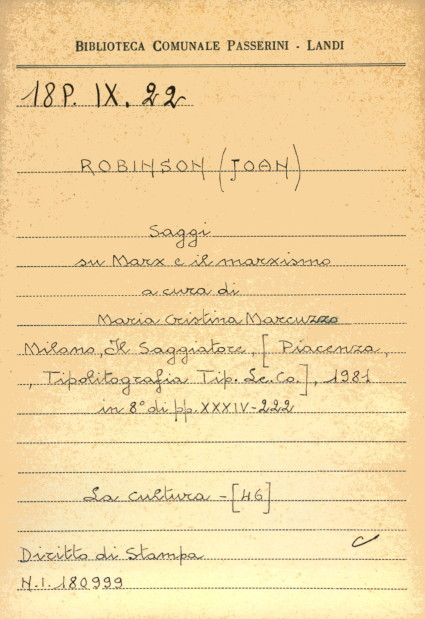 BIBLIOTECA COMUNALE PASSERINI - LANDI
18P. IX. 22
ROBINSON (JOAN)
Saggi
su Marx e il marxismo
a cura di
Maria Cristina Marcuzzo
Milano, Il Saggiatore, [Piacenza,
, Tipolitografia Tip. Le. Co.], 1981
in 8° di pp. XXXIV-222
La cultura - [46]
Diritto di Stampa
N.I. 180999